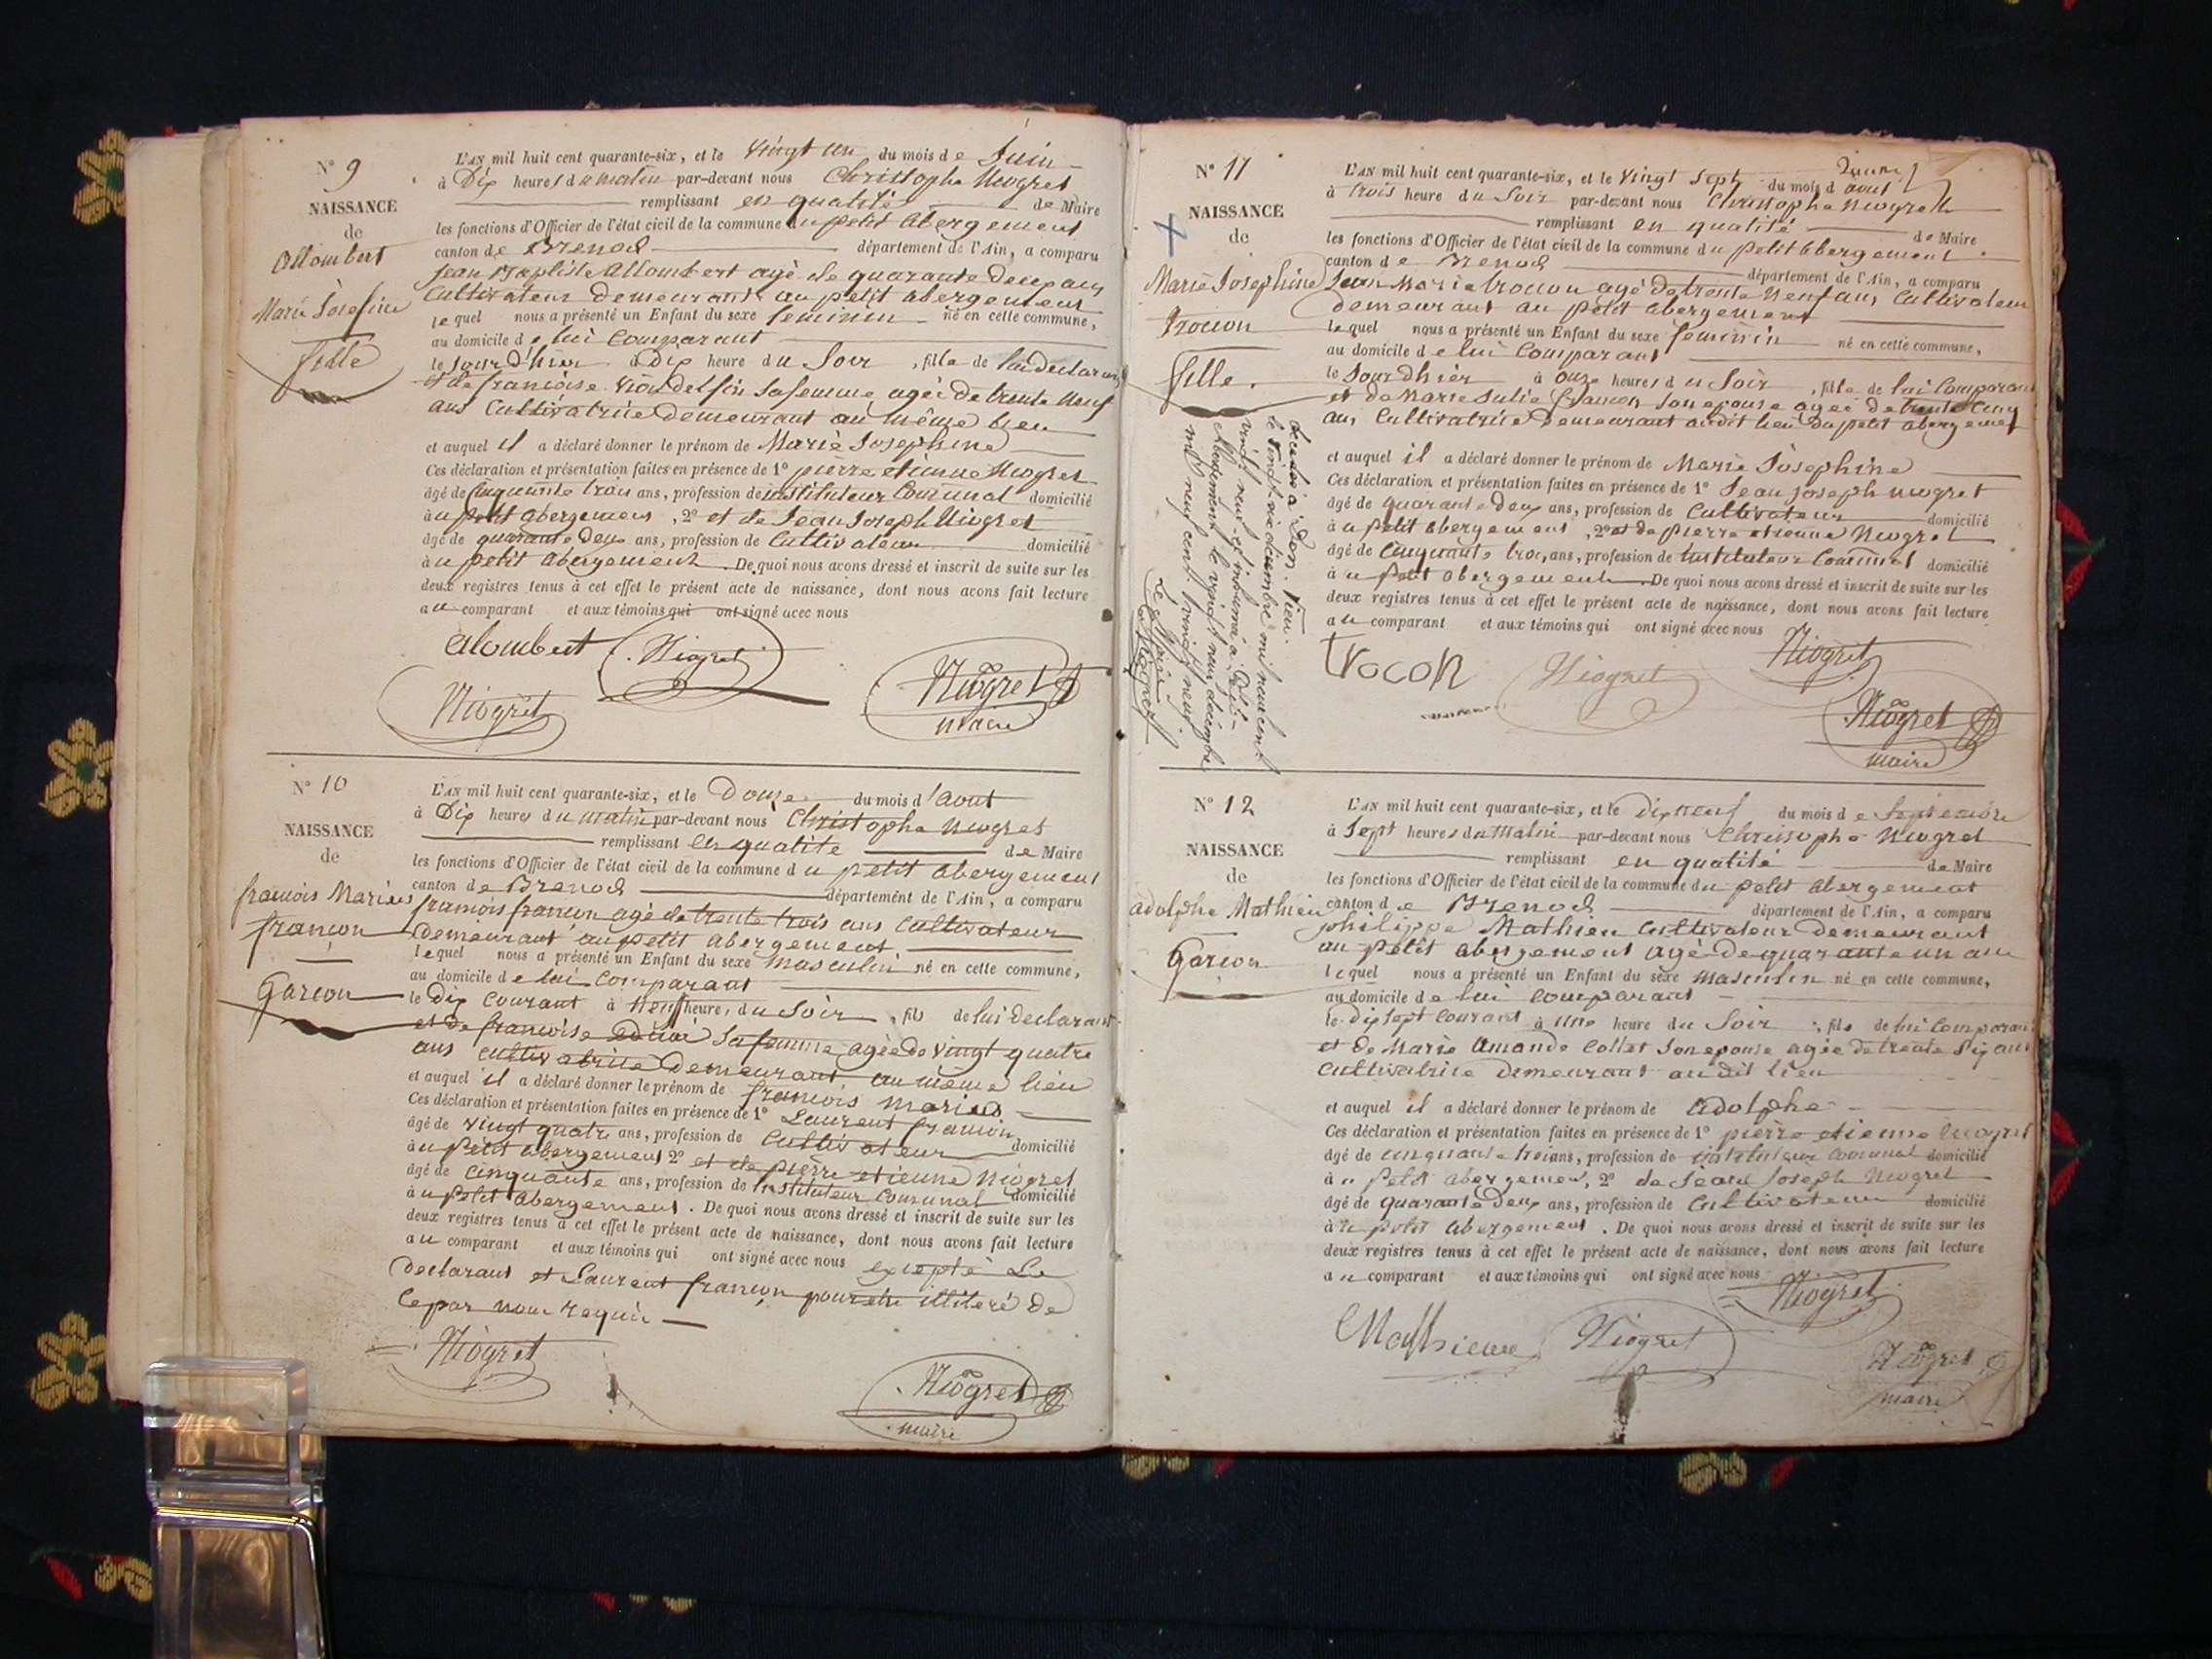 N° 9
NAISSANCE
de
Allombert
Marie Josefine
fille
L'AN mil huit cent quarante-six, et le vingt un du mois de Juin
à Dix heures du matin par-devant nous Christophe Niogret
remplissant en qualité de Maire
les fonctions d'Officier de l'état civil de la commune du petit abergement
canton de Brenod département de l'Ain, a comparu
Jean Baptiste Allombert agé de quarante deux ans
Cultivateur demeurant au petit abergement
lequel nous a présenté un Enfant du sexe feminin né en cette commune,
au domicile de lui Comparant
le Jour d'hier à Dix heure du Soir, fille de lui declarant
et de francoise sa femme agée de trente neuf
ans Cultivatrice Demeurant au même lieu
et auquel il a déclaré donner le prénom de Marie Josephine
Ces déclaration et présentation faites en présence de 1° pierre etienne Niogret
âgé de Cinquante trois ans, profession de instituteur Communal domicilié
à u petit abergement, 2° et de Jean Joseph Niogret
âgé de quarante deux ans, profession de Cultivateur domicilié
à u petit abergement. De quoi nous avons dressé et inscrit de suite sur les
deux registres tenus à cet effet le présent acte de naissance, dont nous avons fait lecture
au comparant et aux témoins qui ont signé avec nous
alombert Niogret
Niogret Niogret
maire
N° 10
NAISSANCE
de
francois Marius
françon
Garcon
L'AN mil huit cent quarante-six, et le Douze du mois d'aout
à Dix heures du matin par-devant nous Christophe Niogret
remplissant en qualité de Maire
les fonctions d'Officier de l'état civil de la commune du petit abergement
canton de Brenod département de l'Ain, a comparu
francois françon agé de trente trois ans cultivateur
demeurant au petit abergement
lequel nous a présenté un Enfant du sexe masculin né en cette commune,
au domicile de lui Comparant
le dix courant à Neuf heures du Soir, fils de lui declarant
et de francoise sa femme agée de vingt quatre
ans cultivatrice demeurant au même lieu
et auquel il a déclaré donner le prénom de francois marius
Ces déclaration et présentation faites en présence de 1° Laurent françon
âgé de vingt quatre ans, profession de Cultivateur domicilié
à u petit abergement 2° et de pierre etienne Niogret
âgé de cinquante ans, profession de instituteur Communal domicilié
à u petit abergement. De quoi nous avons dressé et inscrit de suite sur les
deux registres tenus à cet effet le présent acte de naissance, dont nous avons fait lecture
au comparant et aux témoins qui ont signé avec nous excepté Le
declarant et Laurent françon pour être illiteré de
ce par nous requis
Niogret Niogret
maire
N° 11
NAISSANCE
de
Marie Josephine
trocon
fille.
décédée à Don. Vieu.
le vingt six décembre mil neuf cent
vingt neuf et inhumée à Petit-
Abergement le vingt neuf décembre
mil neuf cent vingt neuf.
Le Maire
L'AN mil huit cent quarante-six, et le vingt sept du mois d aout
à trois heure du Soir par-devant nous Christophe Niogret
remplissant en qualité de Maire
les fonctions d'Officier de l'état civil de la commune du petit abergement
canton de Brenod département de l'Ain, a comparu
Jean Marie trocon agé de trente Neuf ans Cultivateur
demeurant au petit abergement
lequel nous a présenté un Enfant du sexe feminin né en cette commune,
au domicile de lui Comparant
le Jour dhier à onze heures du Soir, fille de lui Comparant
et de Marie Julie françon son epouse agée de trente cinq
ans Cultivatrice Demeurant audit lieu du petit abergement
et auquel il a déclaré donner le prénom de Marie Josephine
Ces déclaration et présentation faites en présence de 1° Jean joseph niogret
âgé de quarante deux ans, profession de Cultivateur domicilié
à u petit abergement, 2° et de pierre etienne Niogret
âgé de Cinquante trois ans, profession de Instituteur Communal domicilié
à u petit abergement. De quoi nous avons dressé et inscrit de suite sur les
deux registres tenus à cet effet le présent acte de naissance, dont nous avons fait lecture
au comparant et aux témoins qui ont signé avec nous
trocon Niogret Niogret
Niogret
maire
N° 12
NAISSANCE
de
adolphe Mathieu
Garcon
L'AN mil huit cent quarante-six, et le Dix neuf du mois de Septembre
à Sept heures du Matin par-devant nous Christophe Niogret
remplissant en qualité de Maire
les fonctions d'Officier de l'état civil de la commune du petit abergement
canton de Brenod département de l'Ain, a comparu
philippe Mathieu cultivateur demeurant
au petit abergement agé de quarante un ans
lequel nous a présenté un Enfant du sexe masculin né en cette commune,
au domicile de lui comparant
le dix sept courant à une heure du Soir, fils de lui Comparant
et de Marie amande Collet son epouse agée de trente six ans
cultivatrice demeurant au dit lieu
et auquel il a déclaré donner le prénom de adolphe
Ces déclaration et présentation faites en présence de 1° pierre etienne Niogret
âgé de cinquante trois ans, profession de instituteur Communal domicilié
à u petit abergement, 2° de Jean Joseph Niogret
âgé de quarante deux ans, profession de Cultivateur domicilié
à u petit abergement. De quoi nous avons dressé et inscrit de suite sur les
deux registres tenus à cet effet le présent acte de naissance, dont nous avons fait lecture
au comparant et aux témoins qui ont signé avec nous
Mathieu Niogret Niogret
Niogret
maire